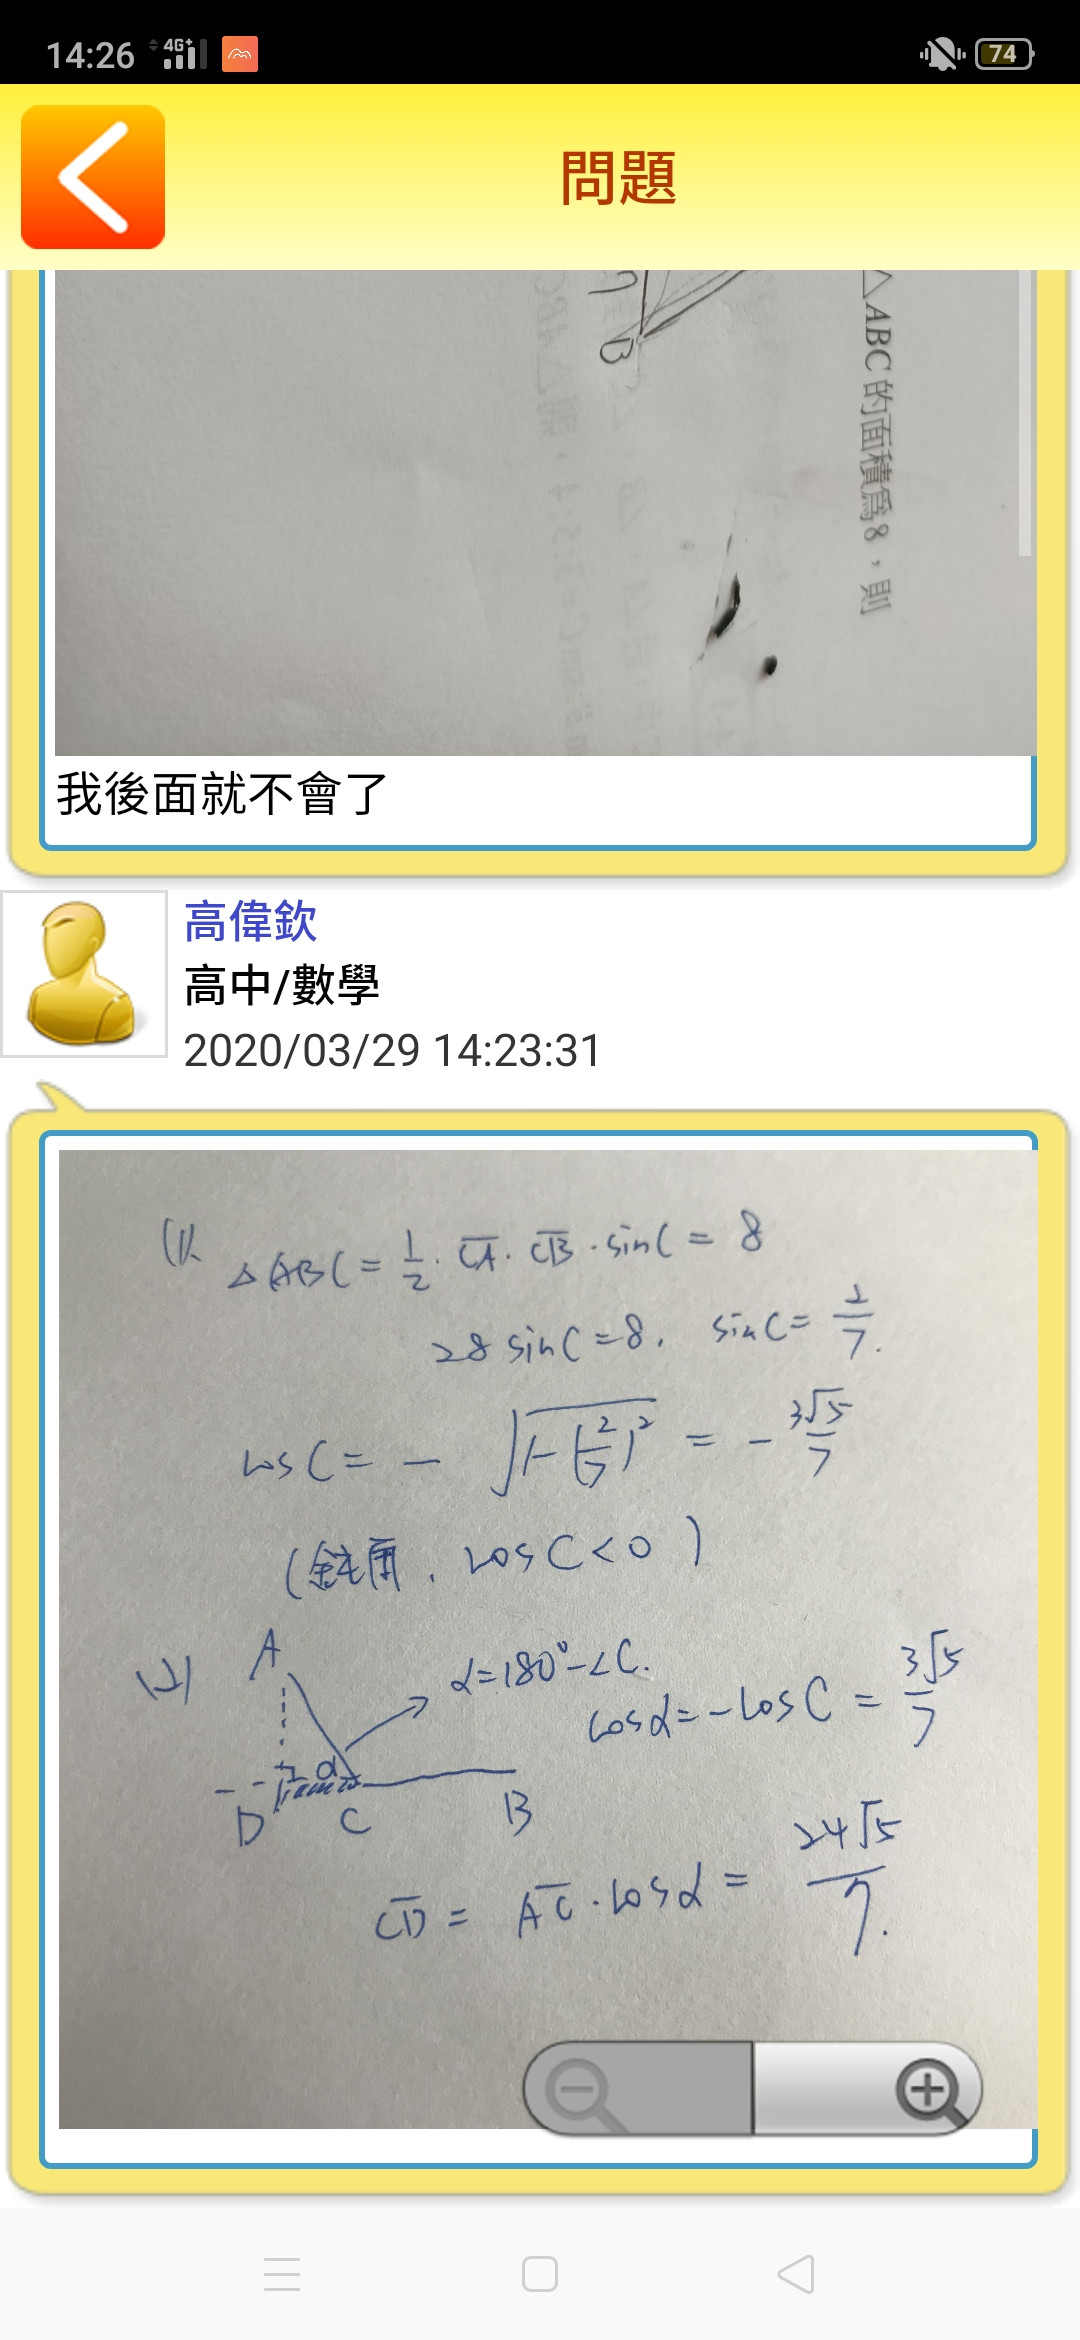 14:26 4G+ 74
問題
B
△ABC的面積為8，則
我後面就不會了
高偉欽
高中/數學
2020/03/29 14:23:31
(1). △ABC = 1/2 · CA · CB · sinC = 8
28 sinC = 8. sinC = 2/7.
cosC = - √(1-(2/7)²) = - 3√5/7
(鈍角, cosC<0)
(2) A
α=180°-∠C.
cosα = -cosC = 3√5/7
α
D C B
CD = AC · cosα = 24√5/7.